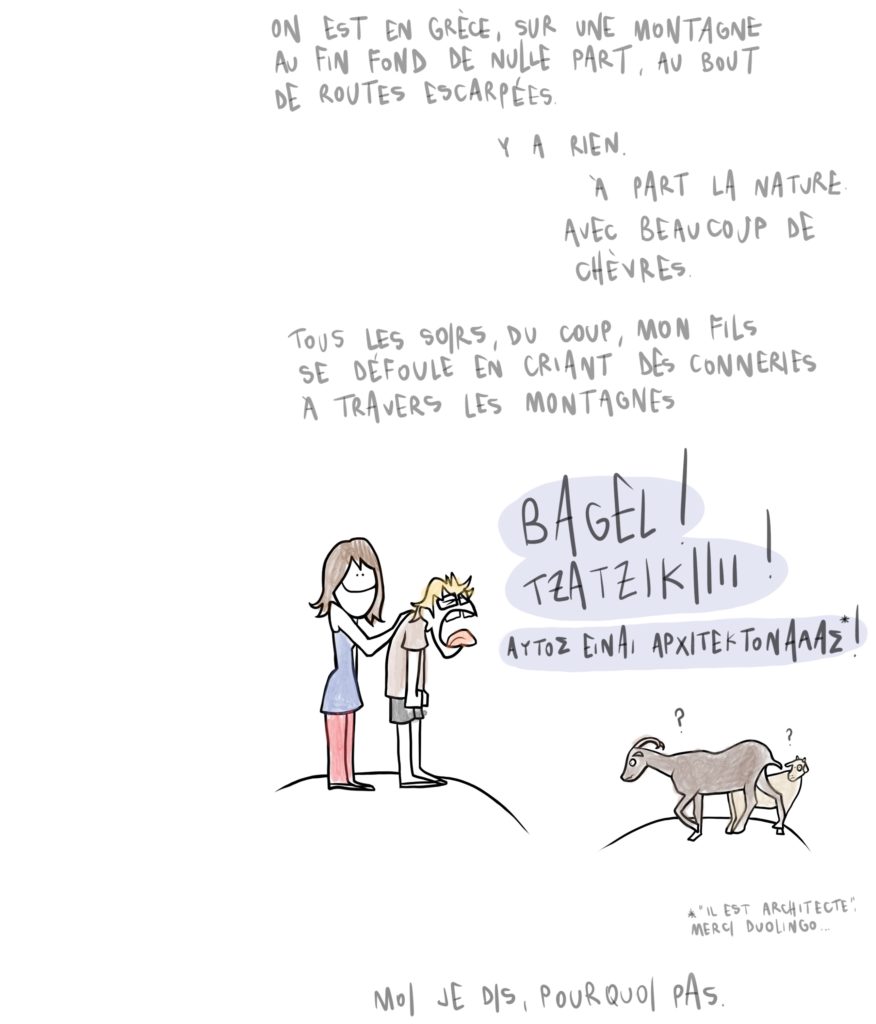 ON EST EN GRÈCE, SUR UNE MONTAGNE
AU FIN FOND DE NULLE PART, AU BOUT
DE ROUTES ESCARPÉES.
Y A RIEN.
À PART LA NATURE.
AVEC BEAUCOUP DE
CHÈVRES.
TOUS LES SOIRS, DU COUP, MON FILS
SE DÉFOULE EN CRIANT DES CONNERIES
À TRAVERS LES MONTAGNES
BAGEL !
TZATZIKIIIII !
ΑΥΤΟΣ ΕΙΝΑΙ ΑΡΧΙΤΕΚΤΟΝΑΑΑΣ*!
?
?
*"IL EST ARCHITECTE".
MERCI DUOLINGO...
MOI JE DIS, POURQUOI PAS.